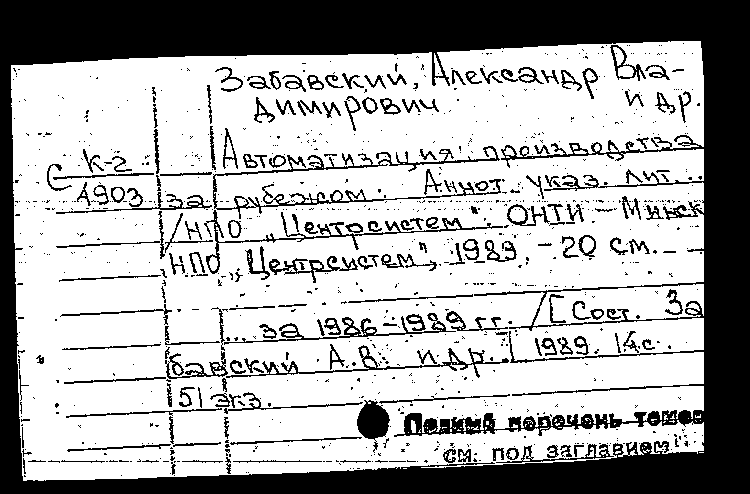 Забавский, Александр Вла-
димирович и др.
Автоматизация производства
С К-2
4903
за рубежом. Аннот. указ. лит. ..
/НПО "Центрсистем". ОНТИ – Минск
НПО "Центрсистем", 1989. – 20 см.
... за 1986–1989 гг. /[Сост. За
бавский А.В. и др.] 1989. 14с.
51 экз.
Полный перечень томов
см. под заглавием